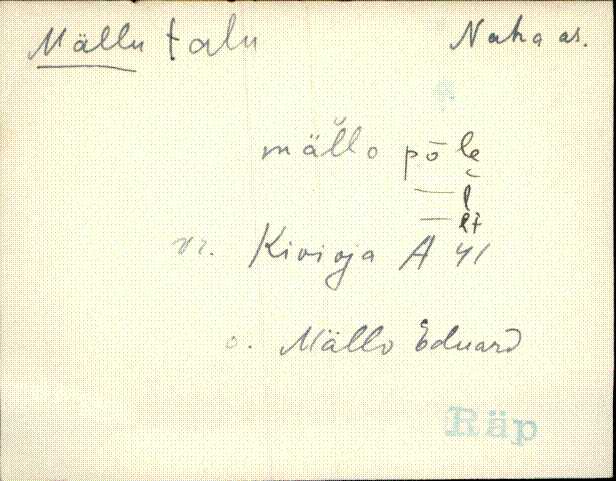 Mällu talu Naha as.
mällo pōle
— l̆
— lt
vr. Kivioja A 41
o. Mällo Eduard
Räp